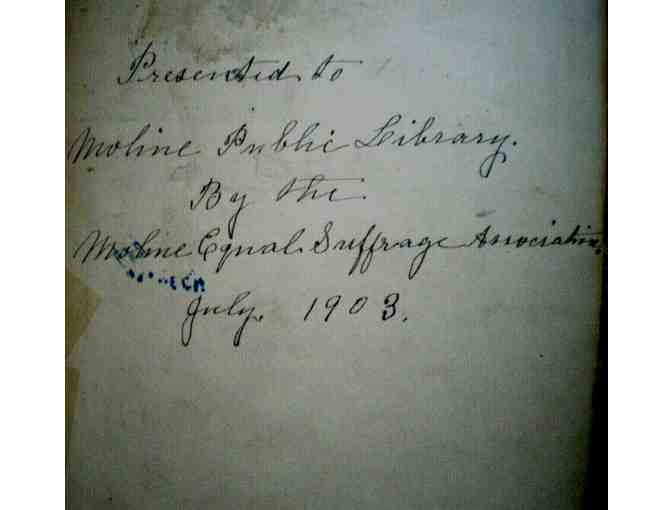 Presented to
Moline Public Library.
By the
Moline Equal Suffrage Association.
July. 1903.